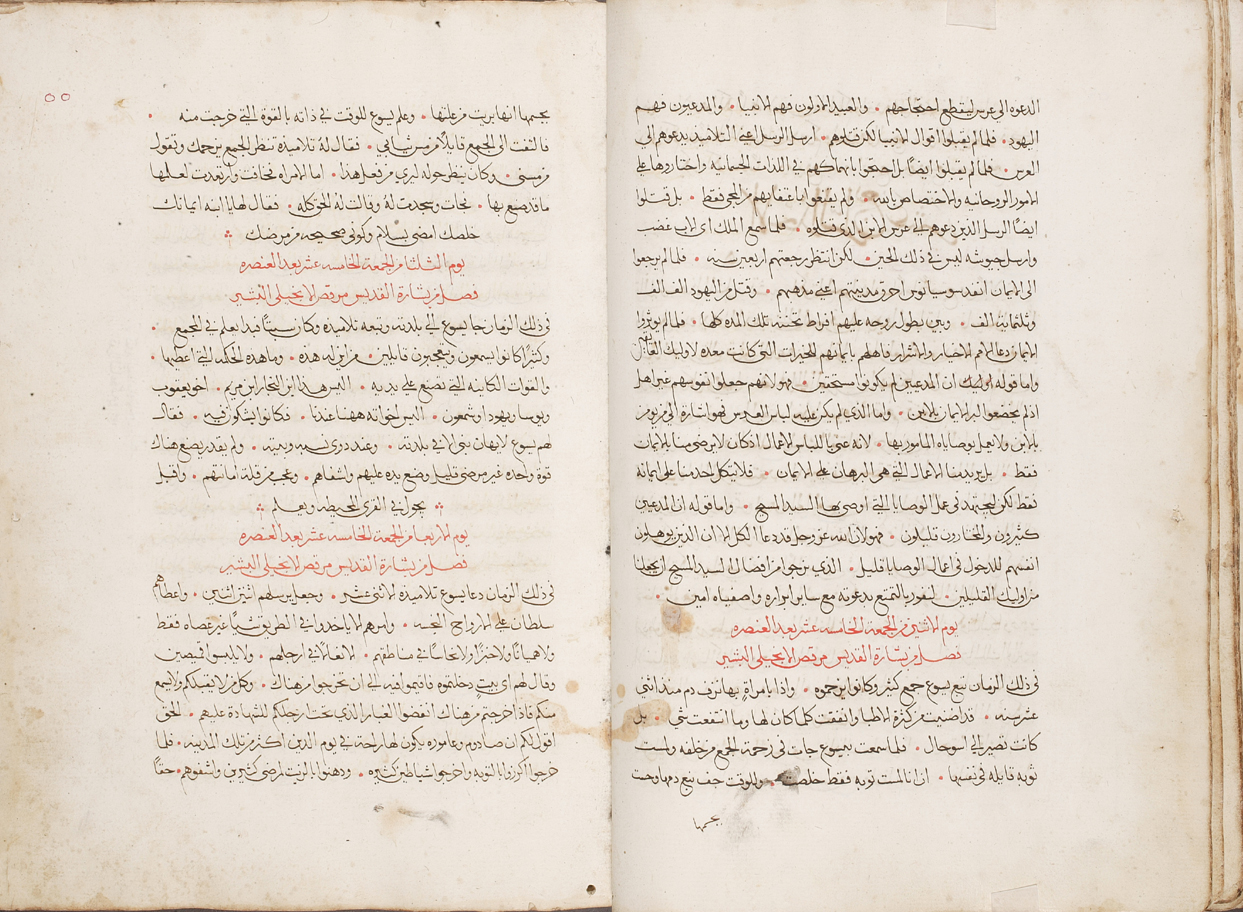 الدعوه الى عرس ليقطع احتجاجهم • والعبيد الاولون فهم الانبيا • والمدعيون فهم
اليهود • فلما لم يقبلوا اقوال الانبيا لكن قتلوهم • ارسل الرسل اعني التلاميذ يدعوهم الى
العرس • فلما لم يقبلوا ايضًا بل احتجوا بانهماكهم في اللذات الجسمانيه واختاروها على
الامور الروحانيه والاختصاص بالله • ولم يقنعوا باعتفايهم من المجي فقط • بل قتلوا
ايضًا الرسل الذين دعوهم الى عرس الابن الذي قتلوه • فلما سمع الملك اي الاب غضب
وارسل جيوشه ليس في ذلك الحين • لكن انتظر رجعتهم اربعين سنه • فلما لم يرجعوا
الى الايمان انفد سوسيانوس احرق مدينتهم اعني مذهبهم • وقتل من اليهود الف الف
وثلثماية الف • وبين بطول روحه عليهم افراط تحننه تلك المدة كلها • فلما لم يوثروا
الايمان دعا الامم الاخيار والاشرار فاهلهم بايمانهم للخيرات التي كانت معده لاوليك
واما قوله اوليك ان المدعيين لم يكونوا مستحقين • فهو لانهم جعلوا نفوسهم غير اهل
اذ لم يخضعوا الى الايمان بالابن • واما الذي لم يكن عليه لباس العرس فهو اشاره الى من يومن
بالابن ولا يعمل بوصاياه المامور بها • لانه عنى باللباس الاعمال اذ كان لا يرضى منا بالايمان
فقط • بل يريد منا الاعمال التي هي البرهان على الايمان • فلا يتكل احد منا على ايمانه
فقط لكن ليجتهد في عمل الوصايا التي اوصى بها السيد المسيح • واما قوله ان المدعيين
كثيرون والمختارون قليلون • فهو لان الله عز وجل قد دعا الكل الا ان الذين يوهلون
انفسهم للدخول في اعمال الوصايا قليل • الذي نرجوا من افضال السيد المسيح ان يجعلنا
من اوليك القليلين • لنفوز بالتمتع بدعوته مع ساير ابراره واصفياه امين •
يوم الاثنين من الجمعة الخامسه عشر بعد العنصره
فصل من بشارة القديس مرقص الانجيلي البشير
في ذلك الزمان تبع يسوع جمع كثير وكانوا يزحموه • واذا بامراةٍ بها نزف دم منذ اثنتي
عشر سنه • قد اضنيت من كثرة الاطبا وانفقت كلما كان لها وما انتفعت شي • بل
كانت تصير الى اسوحال • فلما سمعت بيسوع جات في زحمة الجمع من خلفه ولمست
ثوبه قايله في نفسها • ان انا لمست ثوبه فقط خلصت • وللوقت جف نبع دمها وحت
بجسمها
بجسمها انها بريت من علتها • وعلم يسوع للوقت في ذاته بالقوة التي خرجت منه •
فالتفت الى الجمع قايلًا من مس ثيابي • فقال له تلاميذه تنظر الجمع يزحمك وتقول
من مسني • وكان ينظر حوله ليرى من فعل هذا • اما الامراه فخافت وارتعدت لعلمها
ما قد صنع بها • فجات وسجدت له وقالت له الحق كله • فقال لها يا ابنه ايمانك
خلصك امضي بسلام وكوني صحيحه من مرضك
يوم الثلثا من الجمعة الخامسه عشر بعد العنصره
فصل من بشارة القديس مرقص الانجيلي البشير
في ذلك الزمان جا يسوع الى بلدته وتبعه تلاميذه وكان سبتًا فبدا يعلم في المجمع •
وكثيرًا كانوا يسمعون ويتعجبون قايلين • من اين له هذه • وما هذه الحكمه التي اعطيها •
والقوات الكاينه التي تصنع على يديه • اليس هذا ابن النجار ابن مريم • اخو يعقوب
ويوسا ويهودا وشمعون • اليس اخواته ههنا عندنا • فكانوا يشكوا فيه • فقال
لهم يسوع لا يهان نبي الا في بلدته • وعند دوي نسبه وبيته • ولم يقدر يصنع هناك
قوة واحده غير مرضى قليل وضع يده عليهم واشفاهم • وعجب من قلة امانتهم • واقبل
يجول في القرى المحيطه ويعلم
يوم الاربعا من الجمعة الخامسه عشر بعد العنصره
فصل من بشارة القديس مرقص الانجيلي البشير
في ذلك الزمان دعا يسوع تلاميذه الاثني عشر • وجعل يرسلهم اثنين اثنين • واعطاهم
سلطان على الارواح النجسه • وامرهم الا ياخدوا في الطريق شيًا غير عصاه فقط
ولا هميانًا ولا خبزًا ولا نحاسًا في مناطقهم • الا نعالًا في ارجلهم • ولا يلبسوا قميصين
وقال لهم اي بيتٍ دخلتموه فاقيموا فيه الى ان تخرجوا من هناك • وكل من لا يقبلكم ولا يسمع
منكم فاذا خرجتم من هناك انفضوا الغبار الذي تحت ارجلكم للشهادة عليهم • الحق
اقول لكم ان صادوم وعاموره يكون لها راحة في يوم الدين اكثر من تلك المدينه • فلما
خرجوا اكرزوا بالتوبه واخرجوا شياطين كثيره • ودهنوا بالزيت المرضى كثيرين واشفوهم • حقًا